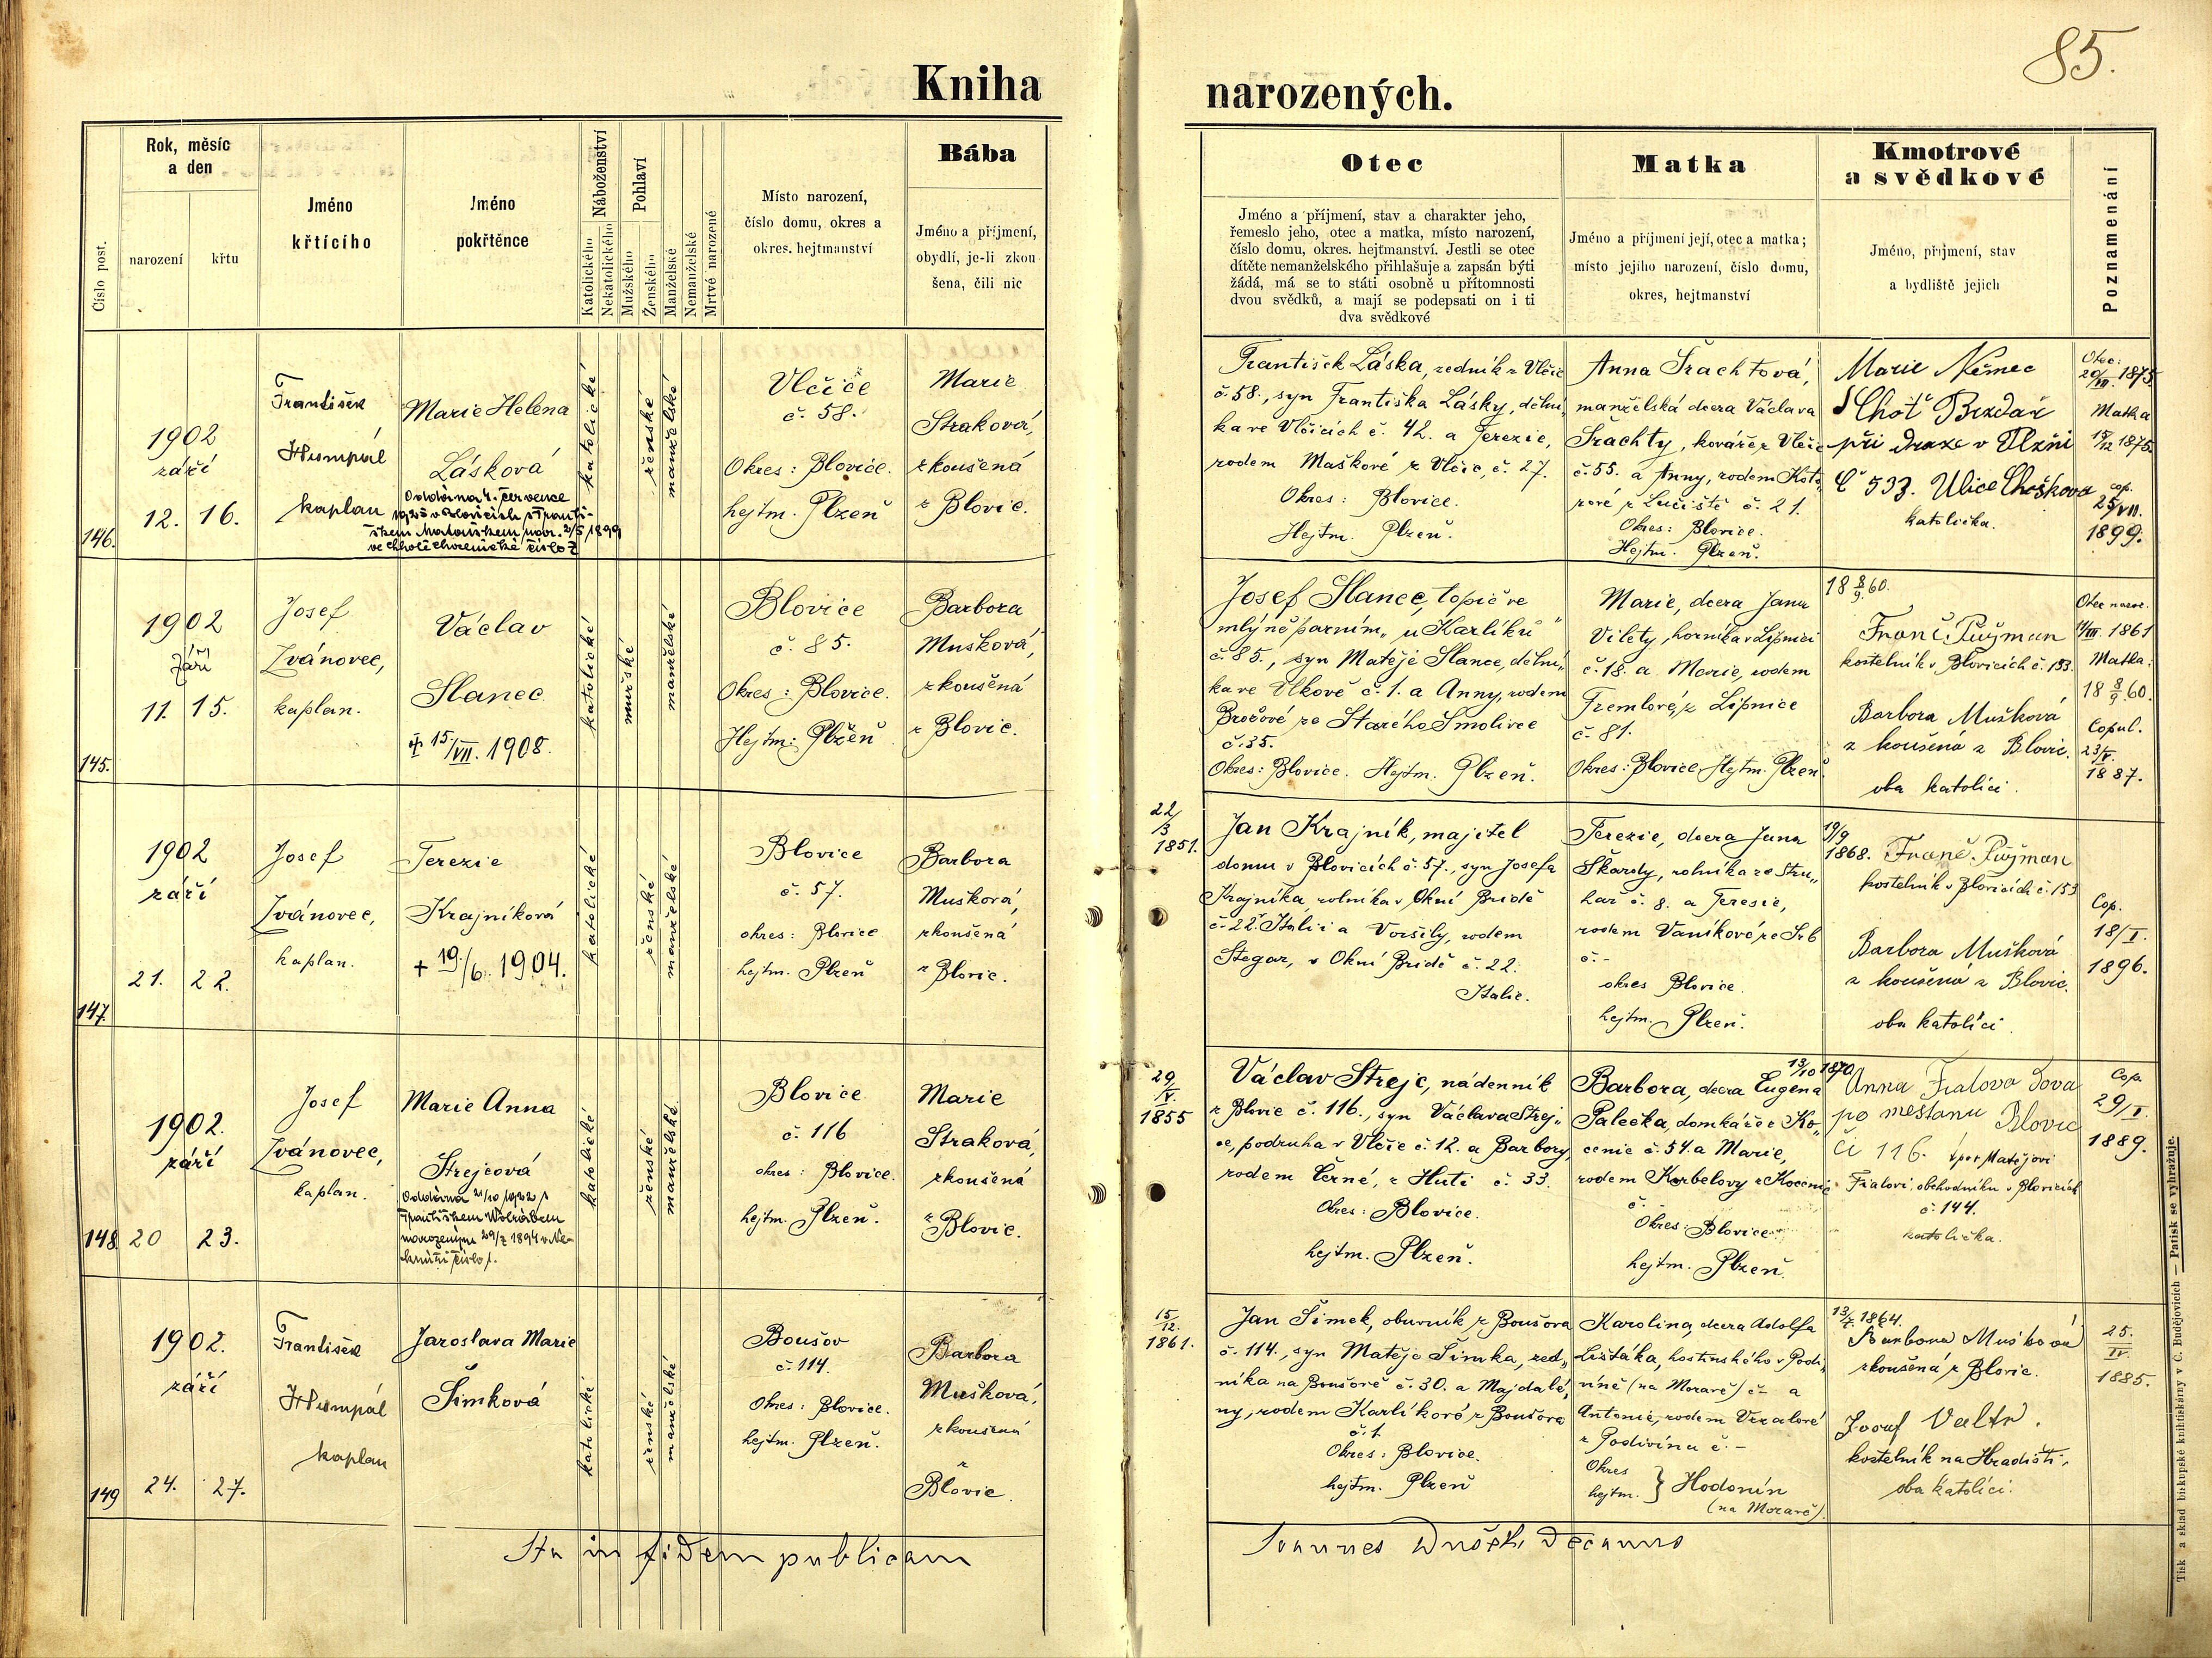 85.
Kniha
narozených.
Číslo post.
Rok, měsíc
a den
narození
křtu
Jméno
křtícího
Jméno
pokřtěnce
Náboženství
Katolického
Nekatolického
Pohlaví
Mužského
Ženského
Manželské
Nemanželské
Mrtvě narozené
Místo narození,
číslo domu, okres a
okres. hejtmanství
Bába
Jméno a příjmení,
obydlí, je-li zkou
šena, čili nic
Otec
Jméno a příjmení, stav a charakter jeho,
řemeslo jeho, otec a matka, místo narození,
číslo domu, okres. hejtmanství. Jestli se otec
dítěte nemanželského přihlašuje a zapsán býti
žádá, má se to státi osobně u přítomnosti
dvou svědků, a mají se podepsati on i ti
dva svědkové
Matka
Jméno a příjmení její, otec a matka;
místo jejího narození, číslo domu,
okres, hejtmanství
Kmotrové
a svědkové
Jméno, příjmení, stav
a bydliště jejich
Poznamenání
146.
1902
září
12. 16.
František
Humpál
kaplan
Marie Helena
Lásková
Oddána 4. července
1925 v Blovicích s Franti-
škem Matouškem, nar. 2/5 1899
ve Lhotě Chocenické číslo 2
katolické
ženské
manželské
Vlčice
č. 58.
Okres: Blovice.
hejtm. Plzeň
Marie
Straková,
zkoušená
z Blovic.
František Láska, zedník z Vlčic
č. 58., syn Františka Lásky, dělní„
ka ve Vlčicích č. 42. a Terezie,
rodem Maškové z Vlčic, č. 27.
Okres: Blovice.
Hejtm. Plzeň.
Anna Šrachtová,
manželská dcera Václava
Šrachty, kováře z Vlčic
č. 55. a Anny, rodem Koto„
rové z Lučiště č. 21.
Okres: Blovice.
Hejtm. Plzeň.
Marie Němec
Choť
při draze v Plzni
Č 533. Ulice
katolička.
Otec:
20/VII. 1875
Matka
15/12 1875
cop.
25/VII.
1899.
145.
1902
Září
11. 15.
Josef
Zvánovec,
kaplan.
Václav
Slanec
15/VII. 1908.
katolické
mužské
manželské
Blovice
č. 85.
Okres: Blovice.
Hejtm: Plzeň
Barbora
Mušková,
zkoušená
z Blovic.
Josef Slanec, topič ve
mlýně parním „u Karlíků“
č. 85., syn Matěje Slance, dělní„
ka ve Vlkově č. 1. a Anny, rodem
Brožové ze Starého Smolivce
č. 35.
Okres: Blovice. Hejtm. Plzeň.
Marie, dcera Jana
Vilety, horníka v Lipnici
č. 18. a Marie, rodem
Tremlové, z Lipnice
č. 81.
Okres: Blovice Hejtm. Plzeň.
18 8/9 60.
Franč. Pužman
kostelník v Blovicích č. 153.
Barbora Mušková
zkoušená z Blovic.
oba katolíci.
Otec naroz.
1861
Matka:
18 8/9 60.
Copul.
23/V.
1887.
147.
1902
září
21. 22.
Josef
Zvánovec,
kaplan.
Terezie
Krajníková
+ 19./6. 1904.
katolické
ženské
manželské
Blovice
č. 57.
okres: Blovice
hejtm. Plzeň
Barbora
Mušková,
zkoušená
z Blovic.
22/3
1851.
Jan Krajník, majitel
domu v Blovicích č. 57., syn Josefa
Krajníka, rolníka v Okní Bridě
č. 22. Italii a Voršily, rodem
Stegar, v Okní Bridě č. 22.
Italie.
Terezie, dcera Jana
Škardy, rolníka ze Stru„
hař č. 8. a Terezie,
rodem Vaníkové ze Srb
č. -
okres Blovice.
hejtm. Plzeň.
19/9
1868.
Franč. Pužman
kostelník v Blovicích č. 153
Barbora Mušková
zkoušená z Blovic.
oba katolíci.
Cop.
18/I.
1896.
148.
1902.
září
20 23.
Josef
Zvánovec,
kaplan.
Marie Anna
Štrejcová
Oddána 21/10 1922 s
Františkem
narozeným 29/7 1894 v Ne-
číslo 1.
katolické
ženské
manželské
Blovice
č. 116
okres: Blovice.
hejtm. Plzeň.
Marie
Straková,
zkoušená
z Blovic.
29/V.
1855
Václav Štrejc, nádenník
z Blovic č. 116., syn Václava Štrej„
ce, podruha v Vlčic č. 12. a Barbory,
rodem Černé, z Huti č. 33.
Okres: Blovice.
hejtm. Plzeň.
13/10 1870
Barbora, dcera Eugena
Palečka, domkáře z Ko„
cenic č. 54. a Marie,
rodem Korbelovy z Kocenic
č.
Okres: Blovice.
hejtm. Plzeň.
Anna Fialova vdova
po mestanu Blovic
Č 116. Matějovi
Fialovi, obchodníku v Blovicích
č. 144.
katolička.
Cop.
29/I.
1889.
149
1902.
září
24. 27.
František
Humpál
kaplan
Jaroslava Marie
Šimková
katolické
ženské
manželské
Boušov
č. 114.
Okres: Blovice.
hejtm. Plzeň.
Barbora
Mušková,
zkoušená
z
Blovic.
15/12.
1861.
Jan Šimek, obuvník z Boušova
č. 114., syn Matěje Šimka, zed„
níka na Boušově č. 30. a Majdalé„
ny, rodem Karlíkové z Boušova
č. 1.
Okres: Blovice.
hejtm. Plzeň
Karolina, dcera Adolfa
Lišťáka, hostinského v Podi„
víně (na Moravě) č - a
Antonie, rodem Vrzalové
z Podivína č. -
Okres
hejtm. } Hodonín
(na Moravě).
1864.
Barbora Mušková
zkoušená z Blovic.
Josef Valtr.
kostelník na Hradišti,
oba katolíci.
25.
IV
1885.
Ita in fidem publicam
Joannes Dušek, decanus
Tisk a sklad biskupské knihtiskárny v Č. Budějovicích — Patisk se vyhražuje.